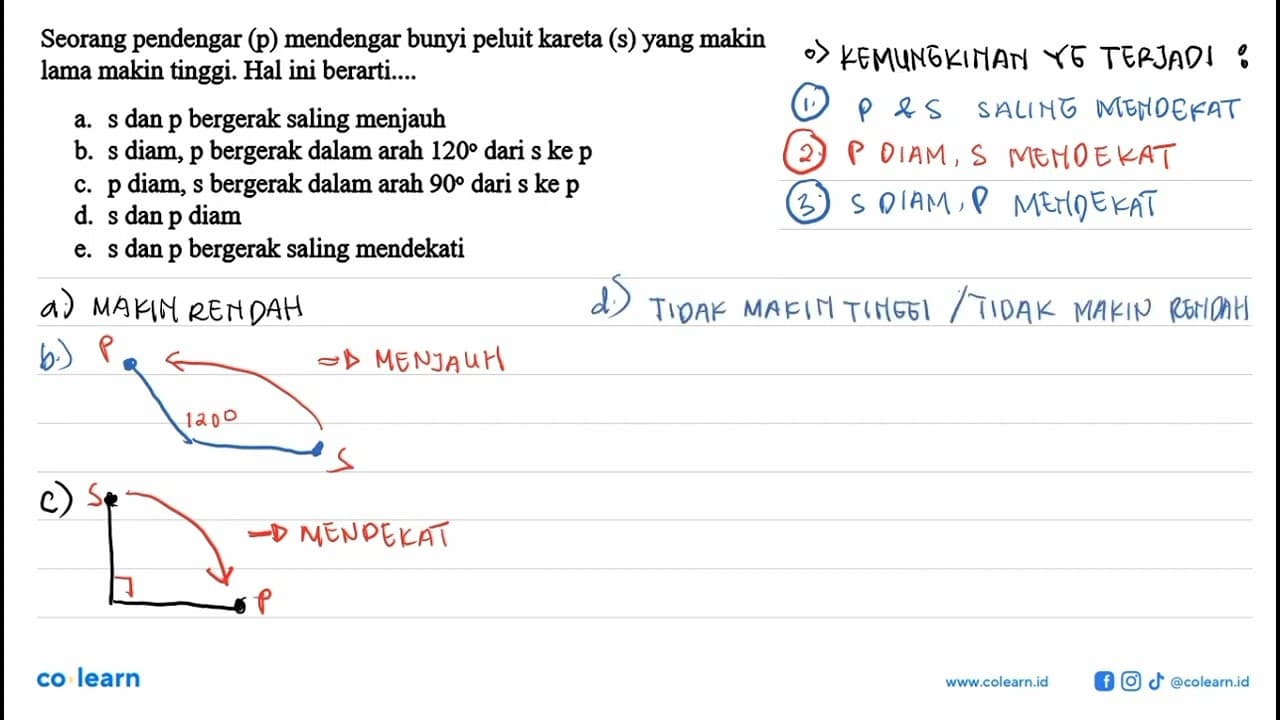 Seorang pendengar (p) mendengar bunyi peluit kareta (s) yang makin
lama makin tinggi. Hal ini berarti....
a. s dan p bergerak saling menjauh
b. s diam, p bergerak dalam arah 120° dari s ke p
c. p diam, s bergerak dalam arah 90° dari s ke p
d. s dan p diam
e. s dan p bergerak saling mendekati
o> KEMUNGKINAN YG TERJADI :
1. P & S SALING MENDEKAT
2. P DIAM, S MENDEKAT
3. S DIAM, P MENDEKAT
a.) MAKIN RENDAH
d.) TIDAK MAKIN TINGGI / TIDAK MAKIN RENDAH
b.) P
⇒ MENJAUH
120°
S
c.) S
→ MENDEKAT
P
co learn
www.colearn.id
@colearn.id